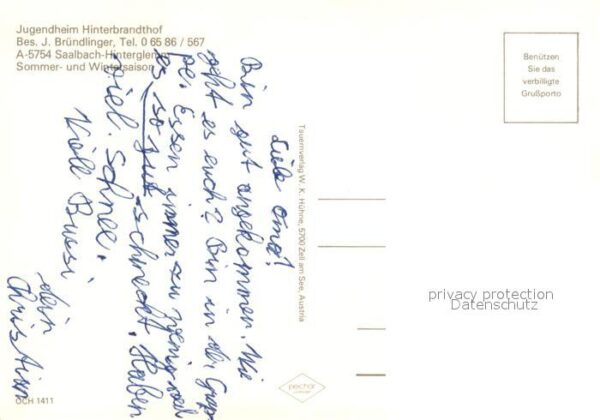 Jugendheim Hinterbrandthof
Bes. J. Bründlinger, Tel. 0 65 86 / 567
A-5754 Saalbach-Hinterglemm
Sommer- und Wintersaison
Liebe Oma!
Bin gut angekommen. Wie
geht es euch? Bin in der Grup
pe. Essen immer zu wenig weil
es so gut schmeckt. Haben
viel Schnee.
Viele Bussi
dein
Christian
Tauernverlag W. K. Hühne, 5700 Zell am See, Austria
Benützen
Sie das
verbilligte
Grußporto
privacy protection
Datenschutz
pechar
OCH 1411